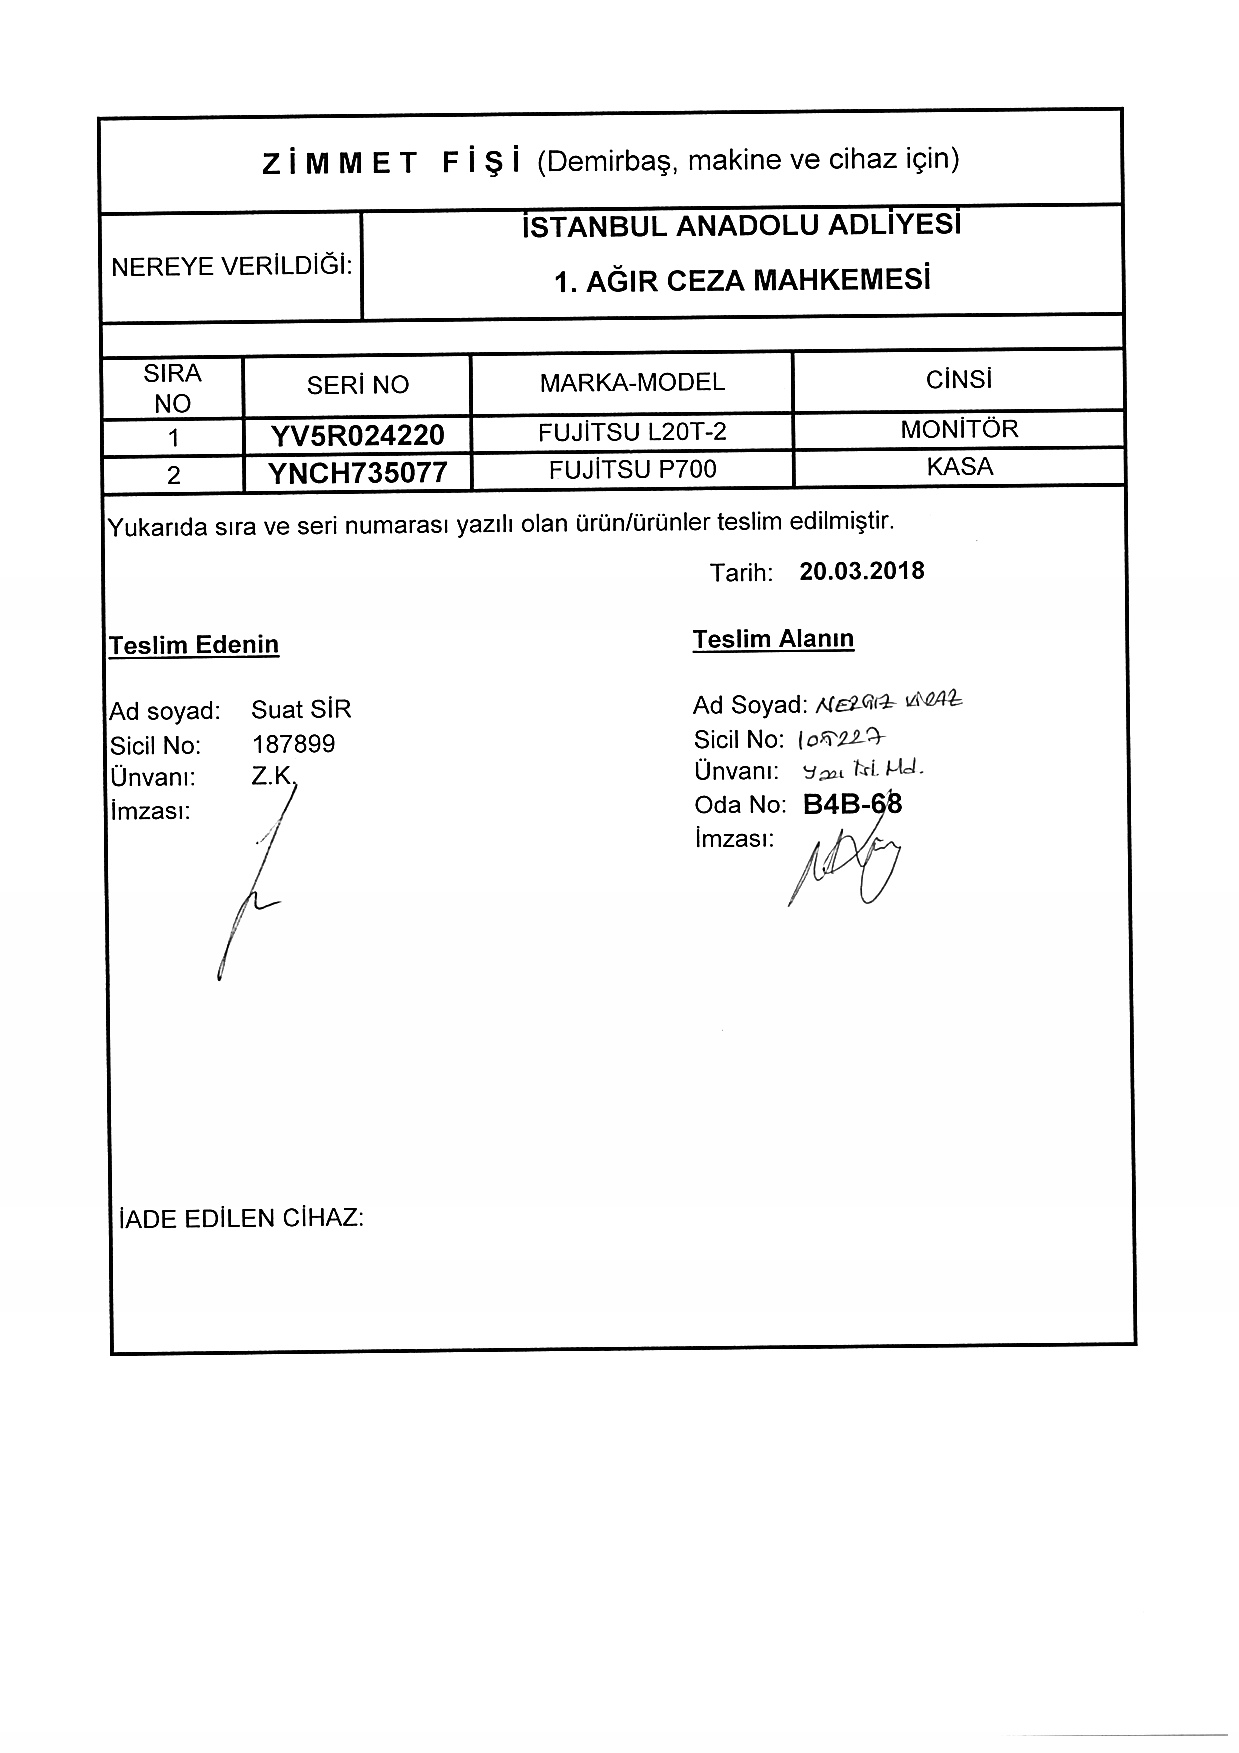 ZİMMET FİŞİ (Demirbaş, makine ve cihaz için)
NEREYE VERİLDİĞİ:
İSTANBUL ANADOLU ADLİYESİ
1. AĞIR CEZA MAHKEMESİ
SIRA NO SERİ NO MARKA-MODEL CİNSİ
1 YV5R024220 FUJİTSU L20T-2 MONİTÖR
2 YNCH735077 FUJİTSU P700 KASA
Yukarıda sıra ve seri numarası yazılı olan ürün/ürünler teslim edilmiştir.
Tarih: 20.03.2018
Teslim Edenin
Ad soyad: Suat SİR
Sicil No: 187899
Ünvanı: Z.K.
İmzası:
Teslim Alanın
Ad Soyad:
Sicil No: 105227
Ünvanı: Yazı İşl. Md.
Oda No: B4B-68
İmzası:
İADE EDİLEN CİHAZ: